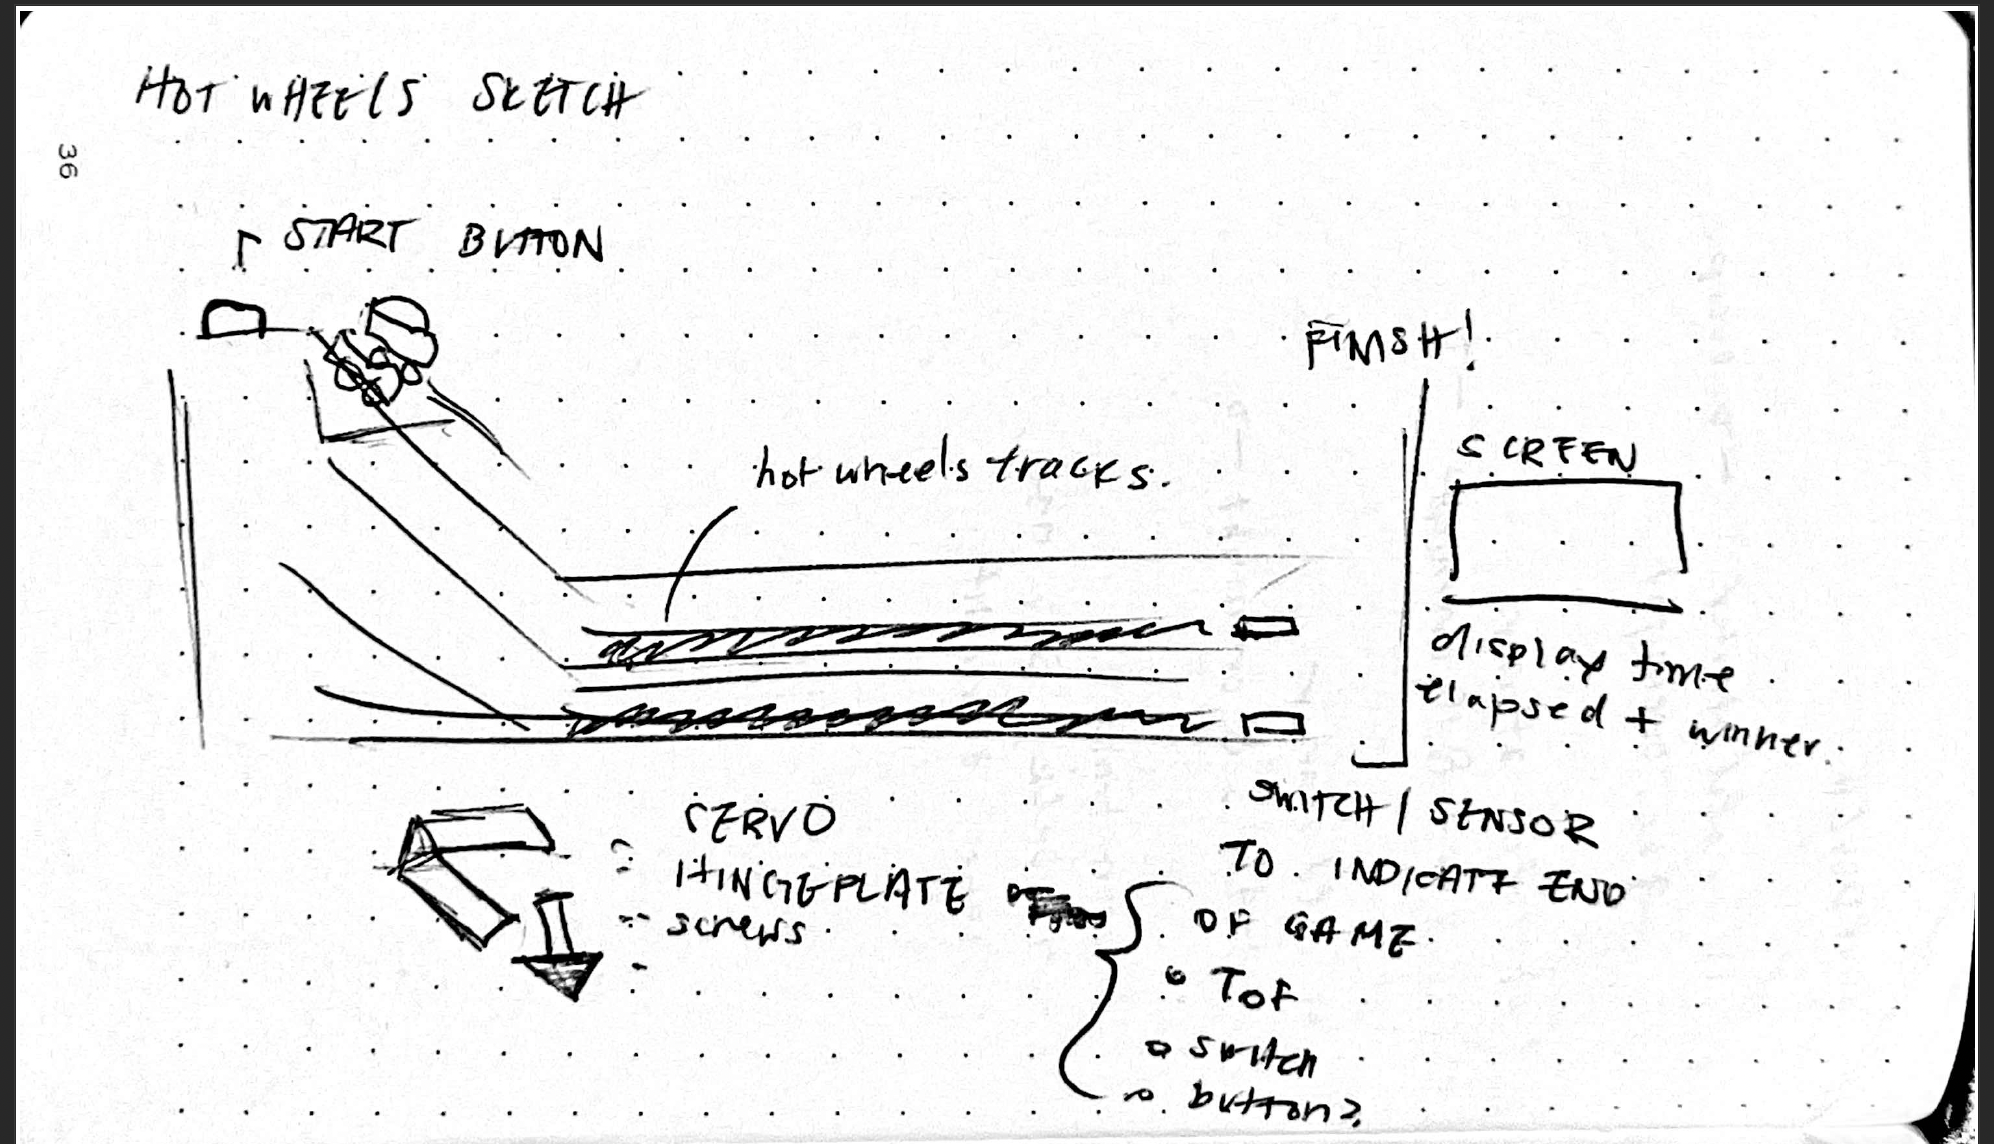 HOT WHEELS SKETCH
36
START BUTTON
FINISH!
SCREEN
hot wheels tracks.
display time
elapsed + winner.
SERVO
HINGE PLATE
screws
SWITCH / SENSOR
TO INDICATE END
OF GAME
ToF
switch
button?